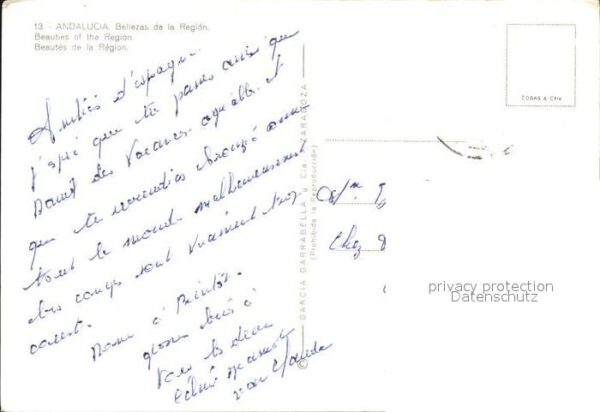 13 - ANDALUCIA. Bellezas de la Región.
Beauties of the Region.
Beautés de la Région.
Amitiés d'espagne.
j'spé que tu passes ainsi que
Daniel des Vacances agréable. et
que tu reviendras bronzé comme
tout le monde malheureusement
les congés sont vraiment trop
court.
Done a Bientôt.
grosses bises à
Vous les deux
GARCIA GARRABELLA y Cia. ZARAGOZA
(Prohibida la Reproducción)
COBAS & CHA
Chez
privacy protection
Datenschutz